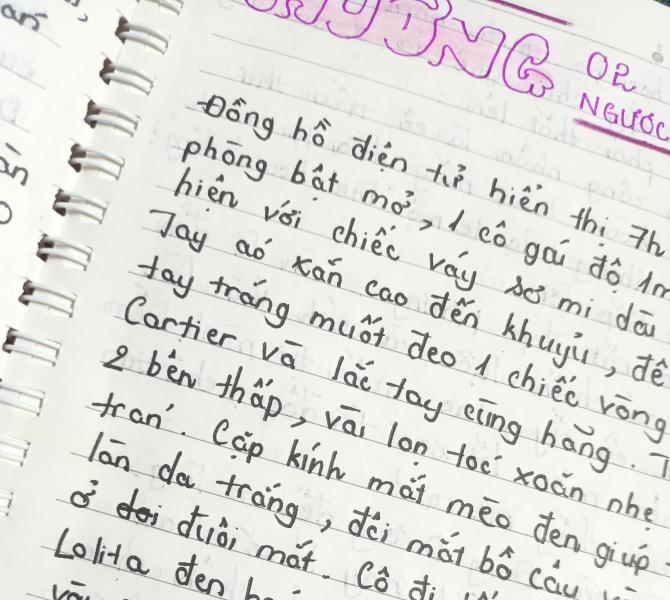 02
NGƯỢC
Đồng hồ điện tử hiển thị 7h
phòng bật mở, 1 cô gái độ 1m
hiện với chiếc váy sơ mi dài
Tay áo xắn cao đến khuỷu, để
tay trắng muốt đeo 1 chiếc vòng
Cartier và lắc tay cùng hãng.
2 bên thấp, vài lọn tóc xoăn nhẹ
trán. Cặp kính mắt mèo đen giúp
làn da trắng, đôi mắt bồ câu
ở đuôi mắt. Cô đi
Lolita đen